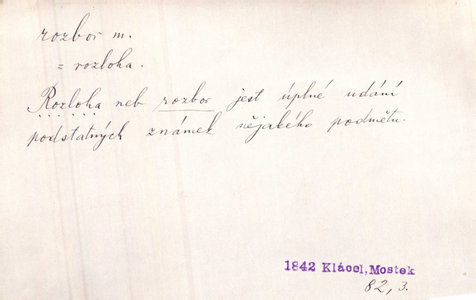 rozbor m.
= rozloha.
Rozloha neb rozbor jest úplné udání
podstatných známek nějakého podmětu.
1842 Klácel, Mostek
82, 3.